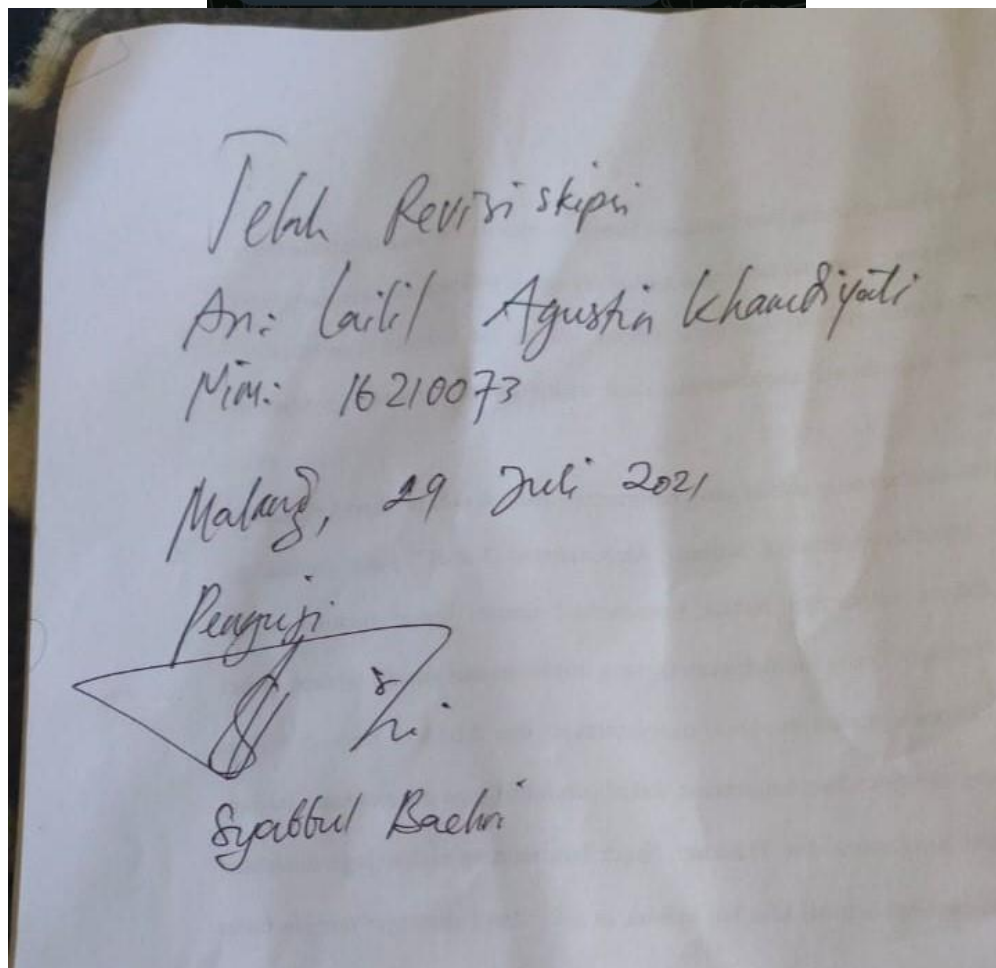 Telah Revisi skipsi
An: Lailil Agustin Khamdiyati
Nim: 16210073
Malang, 29 Juli 2021
Penguji
Syabbul Bachri